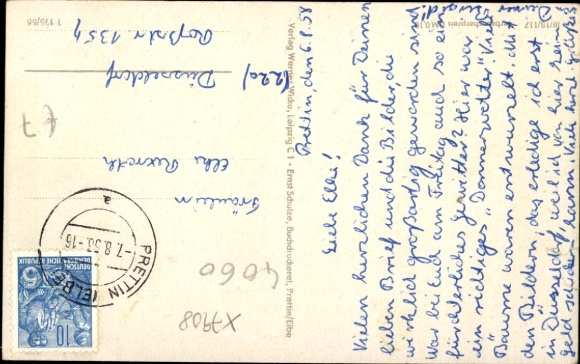 Prettin, den 6.8.58
Liebe Elke!
Vielen herzlichen Dank für Deinen
lieben Brief und die Bilder, die
wirklich großartig geworden sind.
War bei Euch am Freitag auch so ein
fürchterliches Gewitter? Hier war
ein richtiges „Donnerwetter“. Viele
Bäume waren entwurzelt. Mit
den Bildern das erledige ich erst
in Düsseldorf, weil ich von hier kein
Geld schicken kann. Dich herzl. grüßend
Deine
Fräulein
Elke
(22a) Düsseldorf
Roßstr. 135
Verlag Werner Wicke, Leipzig C 1 - Ernst Schulze, Buchdruckerei, Prettin/Elbe
T 175/58
III/18/117
Verbraucherpreis DM 0,
PRETTIN (ELBE)
-7.8.58.-16
a
DEUTSCHE
DEMOKRATISCHE
REPUBLIK
10
47
4060
X7908